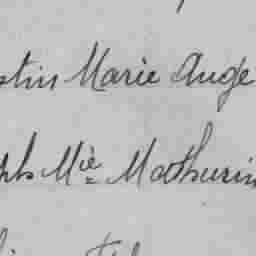 stin Marie Ange
ph Mie Mathurin